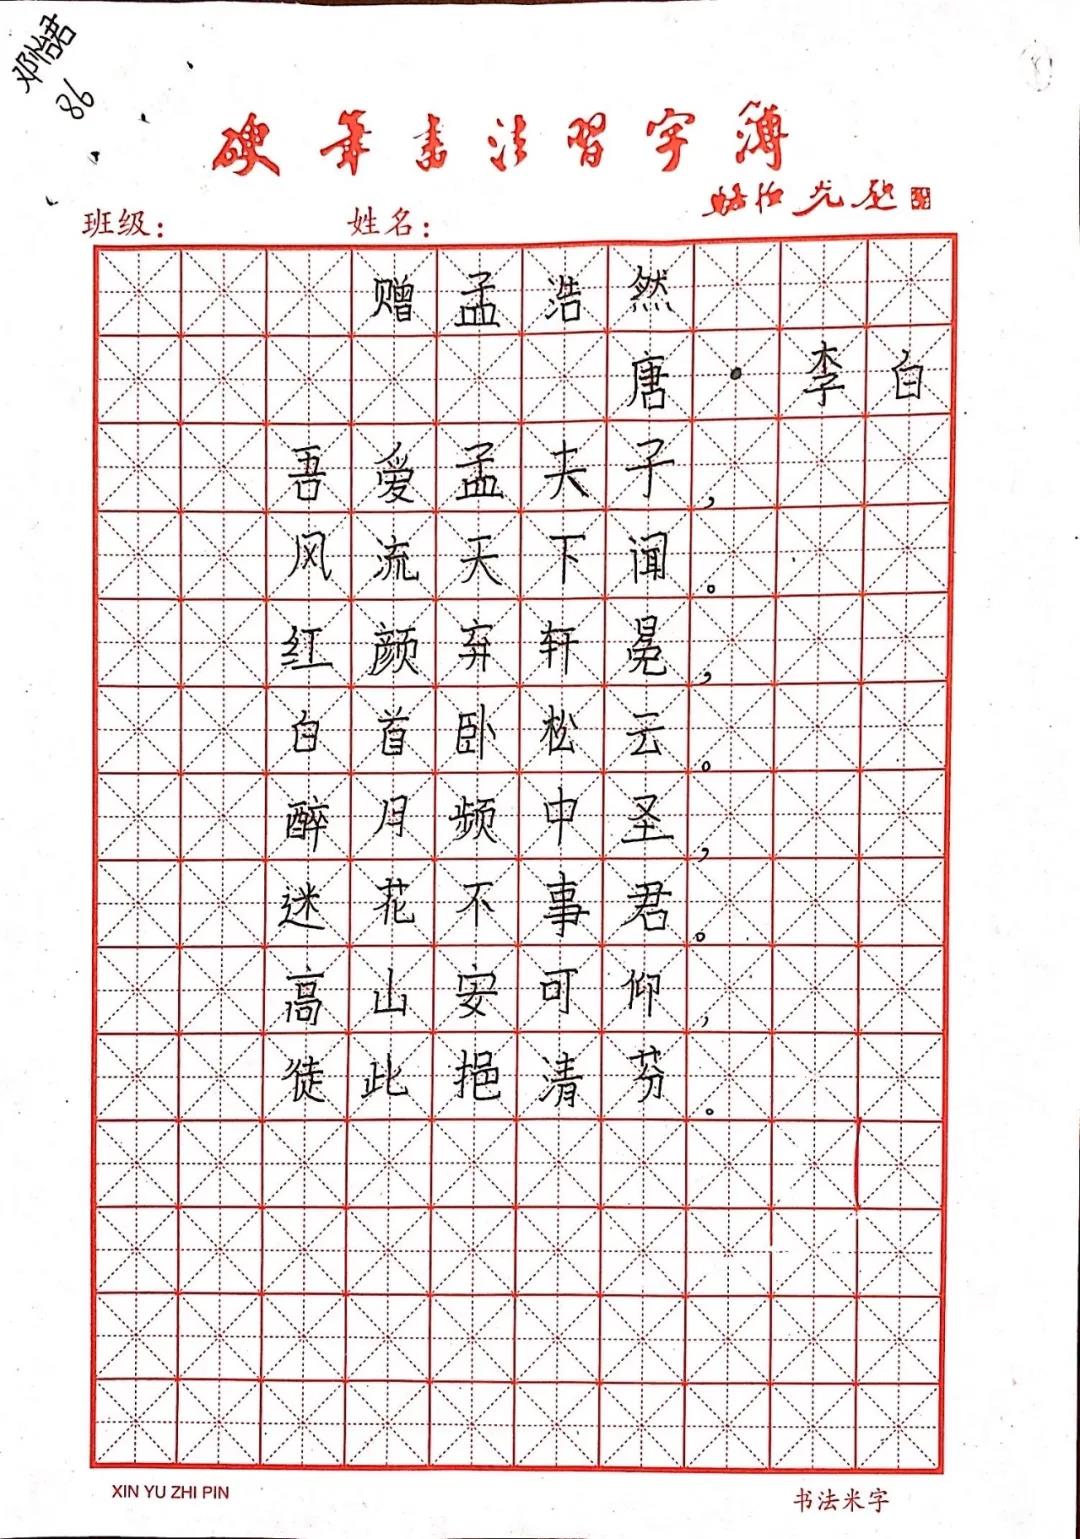 邓怡君
86
硬筆書法習字簿
班级： 姓名：
赠孟浩然
唐·李白
吾爱孟夫子，
风流天下闻。
红颜弃轩冕，
白首卧松云。
醉月频中圣，
迷花不事君。
高山安可仰，
徒此挹清芬。
XIN YU ZHI PIN
书法米字